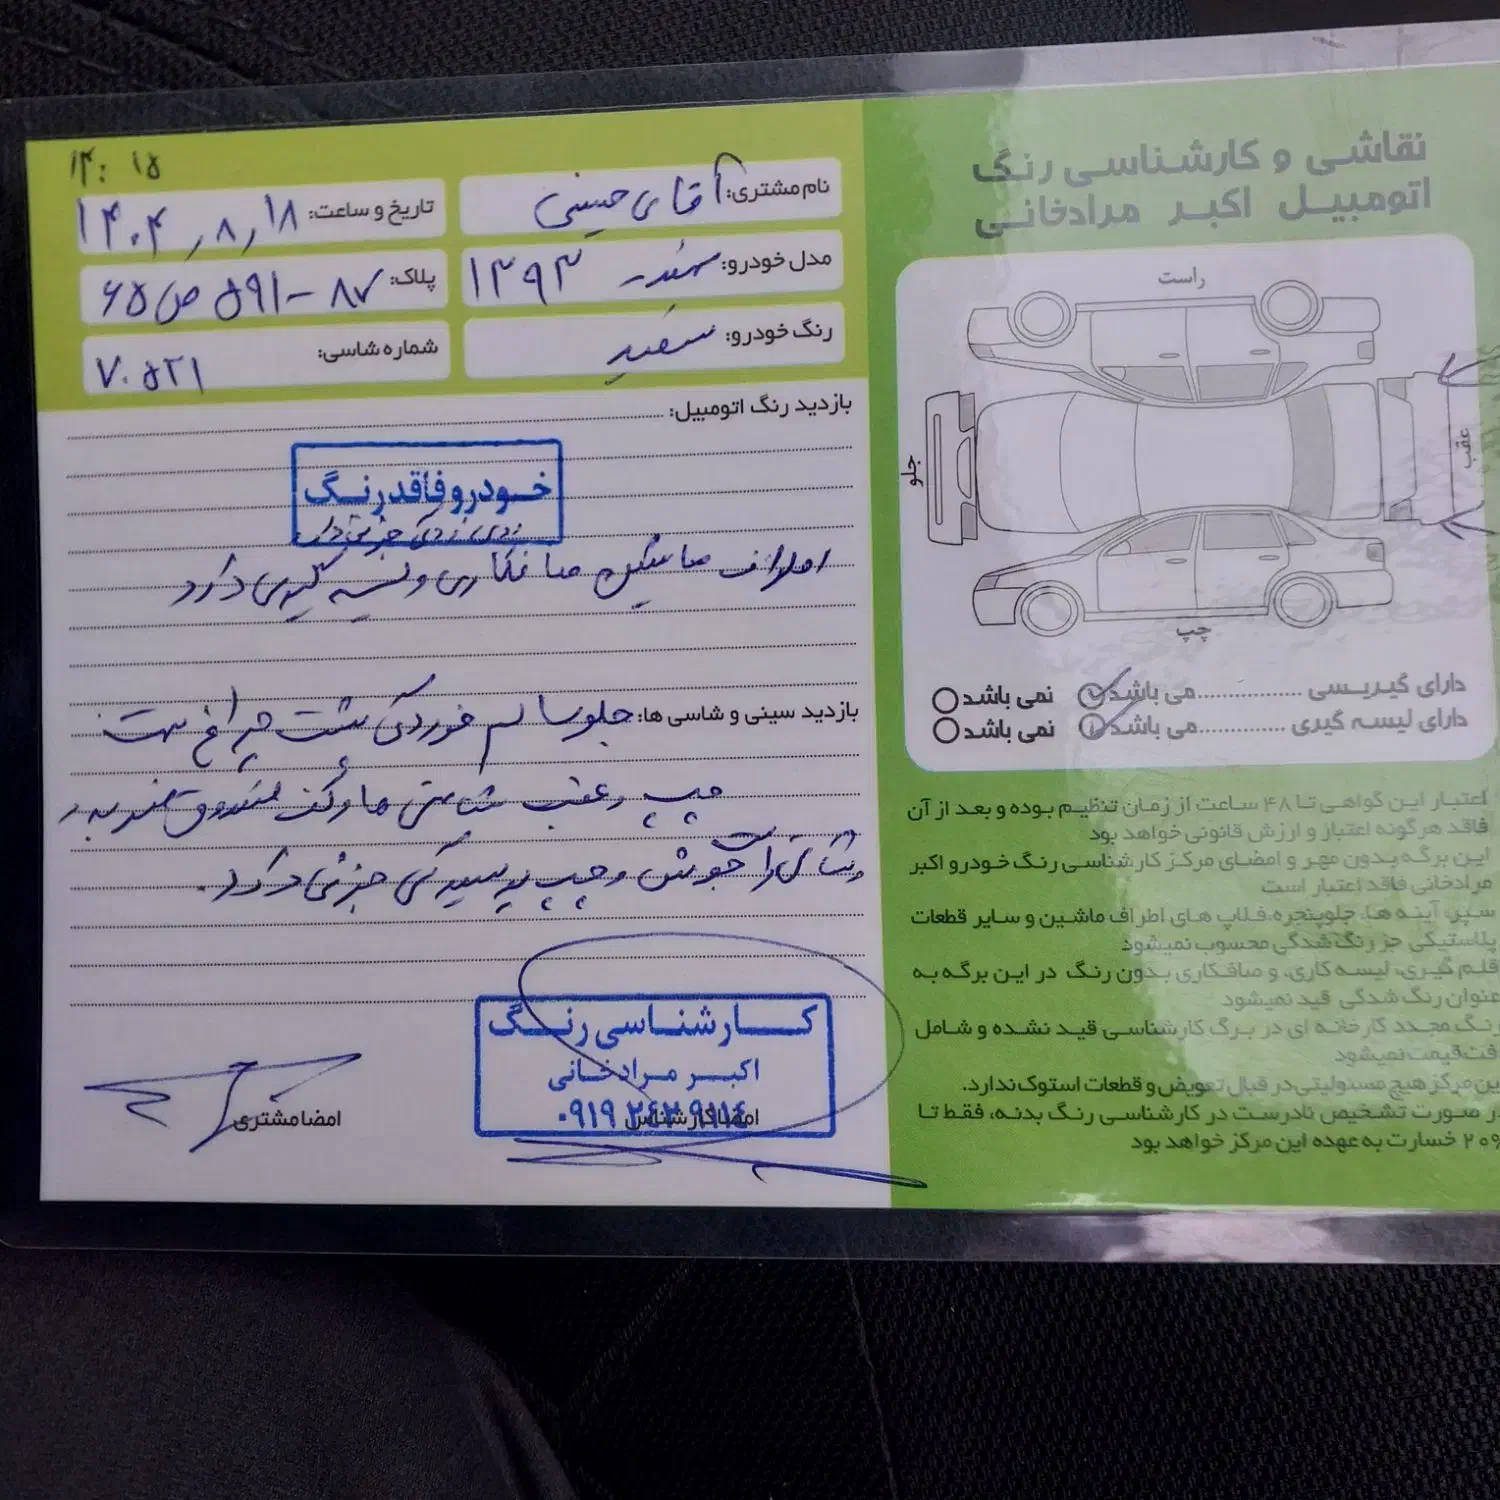 نقاشی و کارشناسی رنگ
اتومبیل اکبر مرادخانی
راست
جلو
عقب
چپ
دارای گیریسی ................ می باشد نمی باشد
دارای لیسه گیری ............. می باشد نمی باشد
اعتبار این گواهی تا ۴۸ ساعت از زمان تنظیم بوده و بعد از آن
فاقد هرگونه اعتبار و ارزش قانونی خواهد بود
این برگه بدون مهر و امضای مرکز کارشناسی رنگ خودرو اکبر
مرادخانی فاقد اعتبار است
سپر، آینه ها، جلوپنجره، فلاپ های اطراف ماشین و سایر قطعات
پلاستیکی جز رنگ شدگی محسوب نمیشود
قلم گیری، لیسه کاری، و صافکاری بدون رنگ در این برگه به
عنوان رنگ شدگی قید نمیشود
رنگ مجدد کارخانه ای در برگ کارشناسی قید نشده و شامل
افت قیمت نمیشود
این مرکز هیچ مسئولیتی در قبال تعویض و قطعات استوک ندارد.
در صورت تشخیص نادرست در کارشناسی رنگ بدنه، فقط تا
خسارت به عهده این مرکز خواهد بود
۱۴:۱۵
نام مشتری: آقای حسینی
تاریخ و ساعت: ۱۴۰۴٫۸٫۱۸
مدل خودرو: سمند - ۱۳۹۳
پلاک: ۸۷ - ۵۹۱ ص ۶۵
رنگ خودرو: سفید
شماره شاسی: ۷۰۵۲۱
بازدید رنگ اتومبیل:
خودرو فاقد رنگ
زدگی جزئی دارد
اطراف ماشین صافکاری و لیسه گیری دارد
بازدید سینی و شاسی ها: جلو سالم خوردگی پشت چراغ سمت
چپ و عقب شاسی ها و کف صندوق ضربه
و جوش و چپ پرسیدگی جزئی دارد.
کارشناسی رنگ
اکبر مرادخانی
۰۹۱۹ ۲۴۲ ۹۱۱۴
امضا کارشناس
امضا مشتری